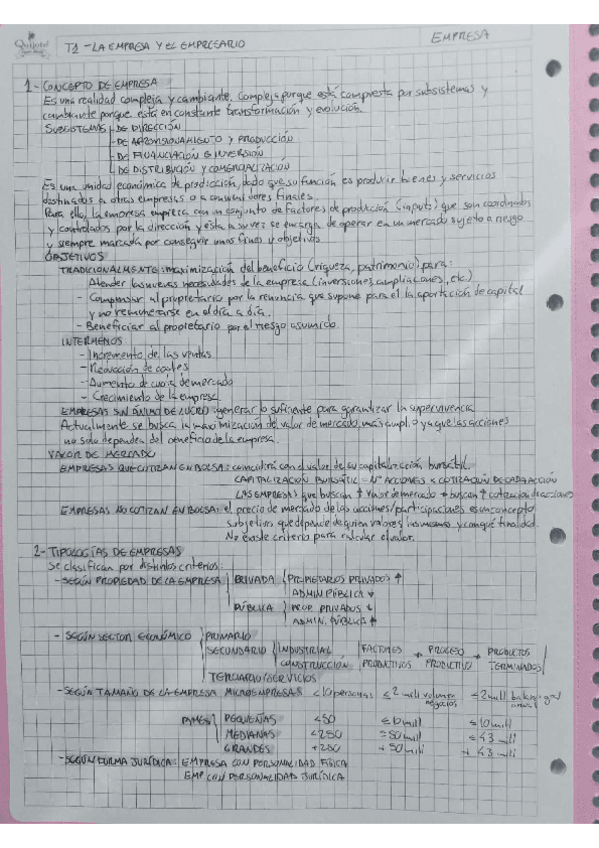 Quijote
T1 - LA EMPRESA Y EL EMPRESARIO
EMPRESA
1 - CONCEPTO DE EMPRESA
Es una realidad compleja y cambiante. Compleja porque está compuesta por subsistemas y
cambiante porque está en constante transformación y evolución.
SUBSISTEMAS - DE DIRECCIÓN
- DE APROVISIONAMIENTO Y PRODUCCIÓN
- DE FINANCIACIÓN E INVERSIÓN
- DE DISTRIBUCIÓN Y COMERCIALIZACIÓN
Es una unidad económica de producción, dado que su función es producir bienes y servicios
destinados a otras empresas o a consumidores finales.
Para ello, la empresa emplea con un conjunto de factores de producción (inputs) que son coordinados
y controlados por la dirección y ésta a su vez se encarga de operar en un mercado sujeto a riesgo
y siempre marcada por conseguir unos fines y objetivos
OBJETIVOS
TRADICIONALMENTE: maximización del beneficio (riqueza, patrimonio) para:
- Atender las nuevas necesidades de la empresa (inversiones, ampliaciones, etc.)
- Compensar al propietario por la renuncia que supone para él la aportación de capital
y no remunerarse en el día a día.
- Beneficiar al propietario por el riesgo asumido.
INTERMEDIOS
- Incremento de las ventas
- Reducción de costes
- Aumento de cuota de mercado
- Crecimiento de la empresa
EMPRESAS SIN ÁNIMO DE LUCRO: generar lo suficiente para garantizar la supervivencia
Actualmente se busca la maximización del valor de mercado, más amplio ya que las acciones
no solo dependen del beneficio de la empresa.
VALOR DE MERCADO
EMPRESAS QUE COTIZAN EN BOLSA: coincidirá con el valor de su capitalización bursátil.
CAPITALIZACIÓN BURSÁTIL = Nº ACCIONES x COTIZACIÓN DE CADA ACCIÓN
LAS EMPRESAS que buscan ↑ valor de mercado → buscan ↑ cotización de acciones
EMPRESAS NO COTIZAN EN BOLSA: el precio de mercado de las acciones/participaciones es un concepto
subjetivo que depende de quien valore las mismas y con qué finalidad.
No existe criterio para calcular el valor.
2 - TIPOLOGÍAS DE EMPRESAS
Se clasifican por distintos criterios:
- SEGÚN PROPIEDAD DE LA EMPRESA PRIVADA PROPIETARIOS PRIVADOS ↑
ADMIN PÚBLICA ↓
PÚBLICA PROP. PRIVADOS ↓
ADMIN. PÚBLICA ↑
- SEGÚN SECTOR ECONÓMICO PRIMARIO
SECUNDARIO INDUSTRIAL FACTORES PRODUCTIVOS → PROCESO PRODUCTIVO → PRODUCTOS TERMINADOS
CONSTRUCCIÓN
TERCIARIO/SERVICIOS
- SEGÚN TAMAÑO DE LA EMPRESA MICROEMPRESAS <10 personas ≤2 mill volumen negocios ≤2 mill balance gral anual
PYMES PEQUEÑAS <50 ≤10 mill ≤10 mill
MEDIANAS <250 ≤50 mill ≤43 mill
GRANDES +250 +50 mill +43 mill
- SEGÚN FORMA JURÍDICA: EMPRESA CON PERSONALIDAD FÍSICA
EMP CON PERSONALIDAD JURÍDICA